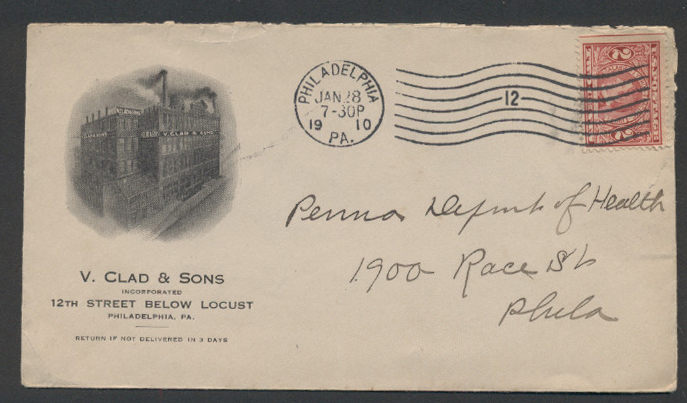 PHILADELPHIA
JAN 28
7-30P
19 10
PA.
12
2
2
V. CLAD & SONS
V. CLAD & SONS
INCORPORATED
12TH STREET BELOW LOCUST
PHILADELPHIA, PA.
RETURN IF NOT DELIVERED IN 3 DAYS
Penna Depmt of Health
1900 Race St
Phila